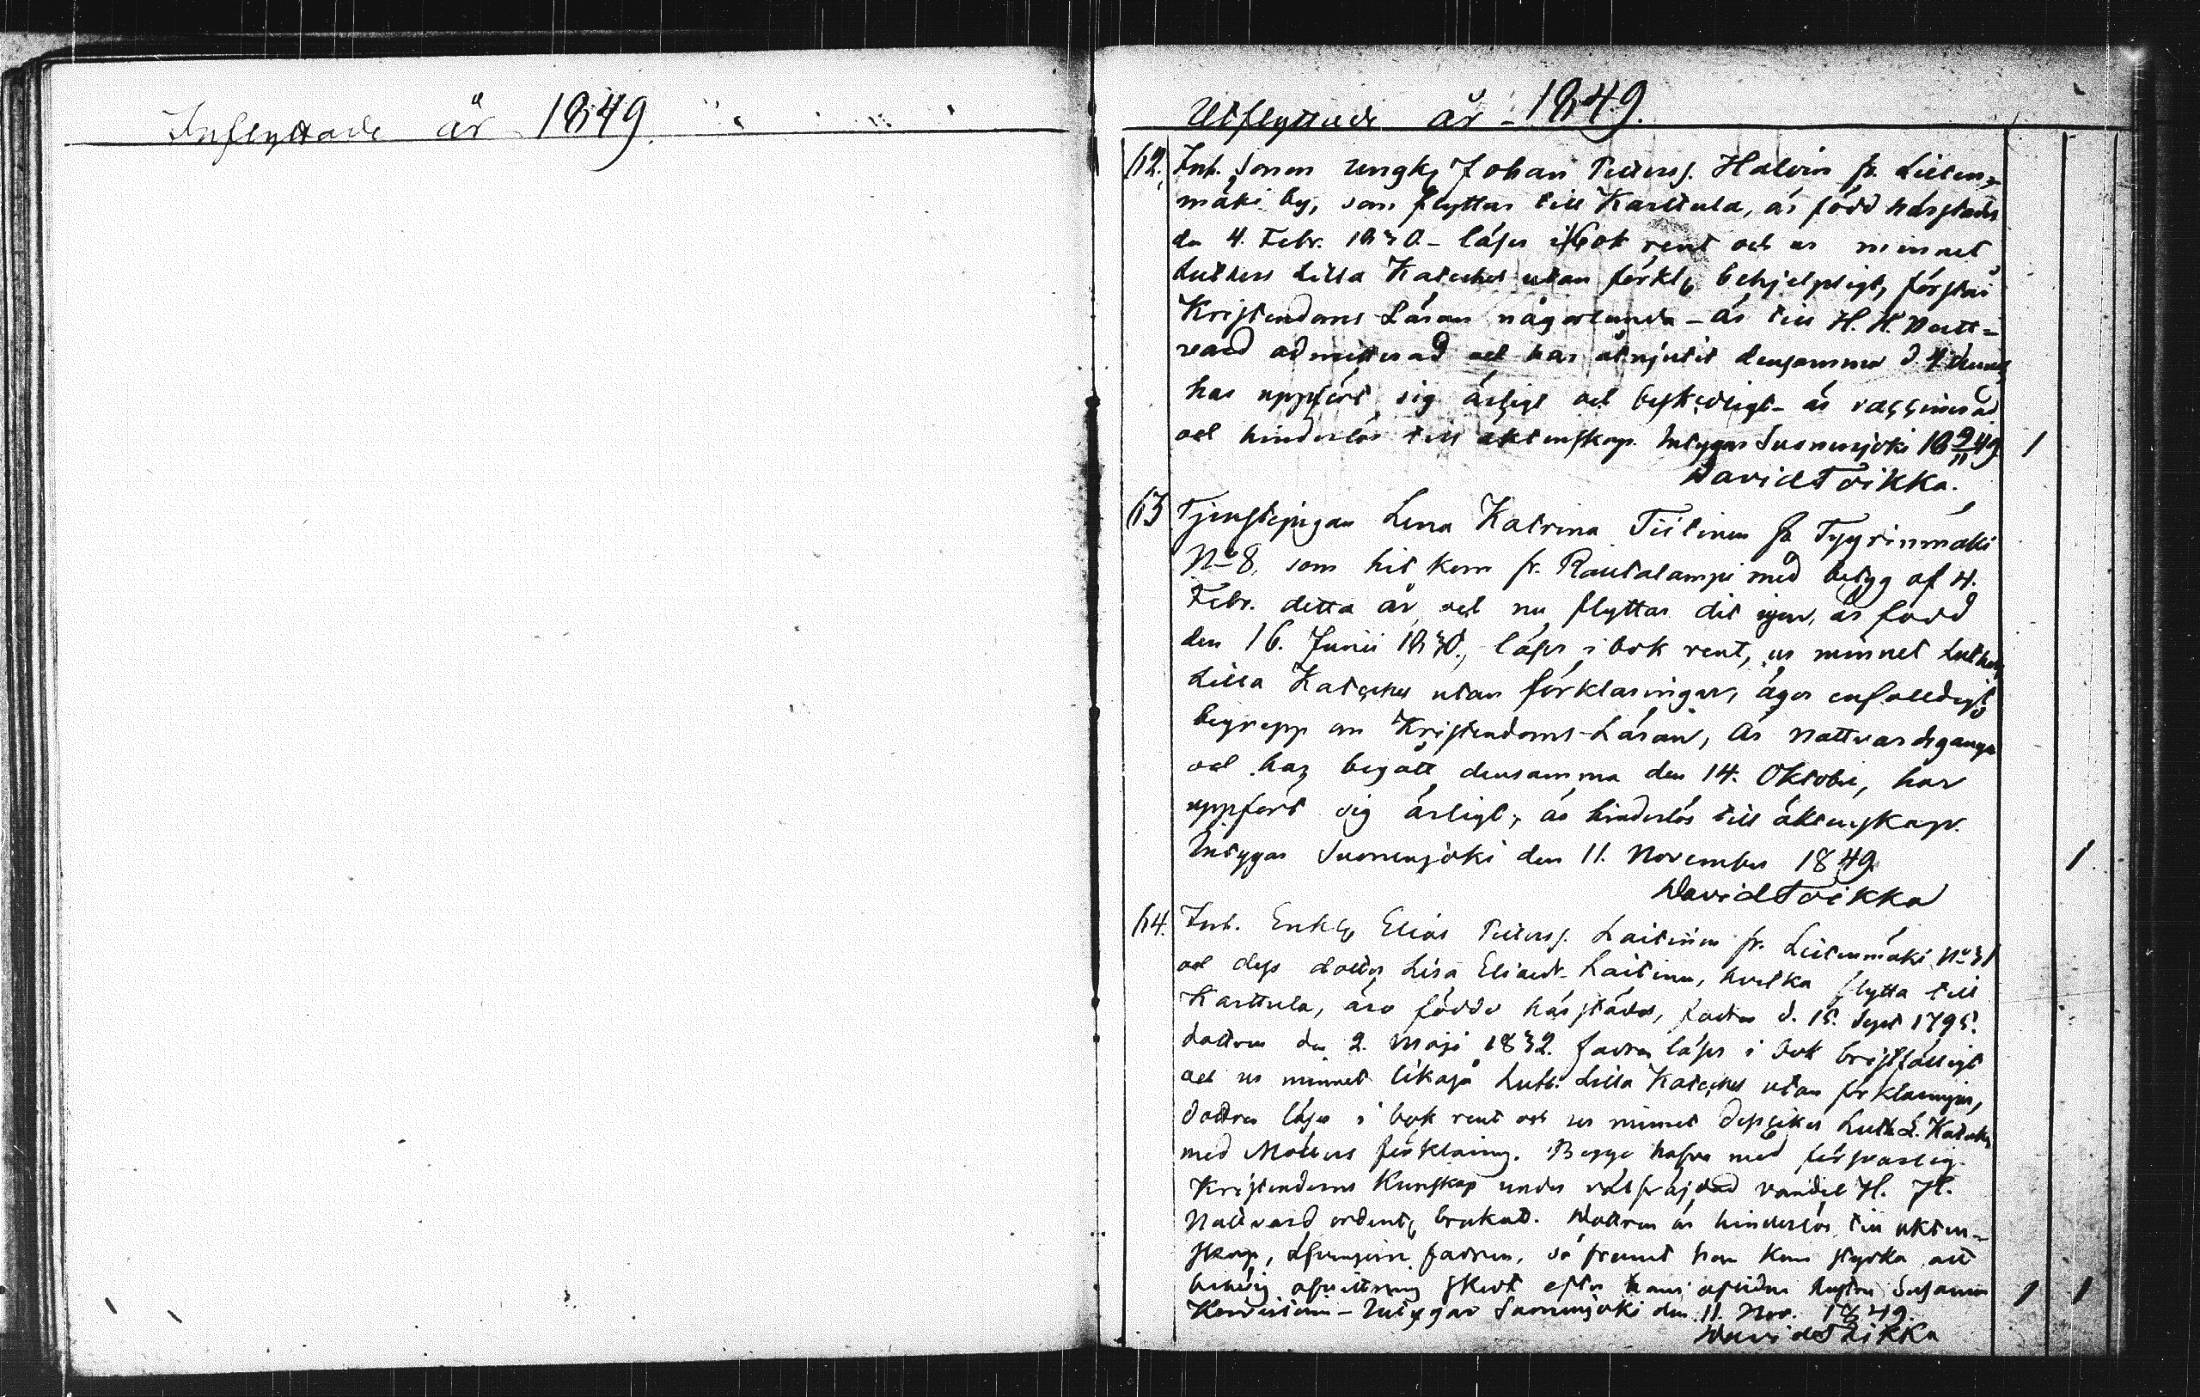 Inflyttade år 1849.
Utflyttade år 1849.
62. Inh. Sonen ungk. Johan Petterss. Halvin fr. Lieten-
mäki by, som flyttar till Karttula, är född härstädes
den 4. Febr. 1830 - läser i bok rent och ur minnet
Luthers Lilla Kateches utan förkl. behjelpligt, förstår
Kristendoms Läran någorlunda - är till H. H. Natt-
vard admitterad och har åtnjutit densamma d. 4 dennes
har uppfört sig ärligt och beskedligt - är vaccinerad
och hinderlös till äktenskap. Intygar Suonenjoki 18 9/11 49. 1
David Toikka.
63 Tjenstepigan Lena Katrina Tiitinen fr. Tyyrinmäki
No 8, som hit kom fr. Rautalampi med betyg af 4.
Febr. detta år och nu flyttar dit igen, är född
den 16. Junii 1830., läser i bok rent, ur minnet Luthers
Lilla Kateches utan förklaringar, äger enfalldigt
begrepp om Kristendoms-Läran, är nattvardsgången
och har begått densamma den 14. Oktober, har
uppfört sig ärligt, är hinderlös till äktenskap.
Intygar Suonenjoki den 11. November 1849. 1
David Toikka
64. Inh. Enkl. Elias Petterss. Laitinen fr. Lietenmäki No 31
och dess dotter Lisa Eliaedr. Laitinen, hvilka flytta till
Karttula, äro födde härstädes, fadren d. 15. Sept 1795.
dottren den 2. Maji 1832. fadren läser i bok bristfälligt
och ur minnet likaså Luth. Lilla Kateches utan förklaringar,
dottren läser i bok rent och ur minnet Luth. L. Kateches
med Möllers förklaring. Begge hafva med försvarlig
Kristendoms Kunskap under välfräjdad vandel H. H.
Nattvard ordentl. brukat. Dottren är hinderlös till äkten-
skap, äfvensom fadren, så framt han kan styrka att
behörig afvittring skett efter hans aflidna hustru Susanna
- Intygar Suonenjoki den 11. Nov. 1849. 1 1
David Toikka